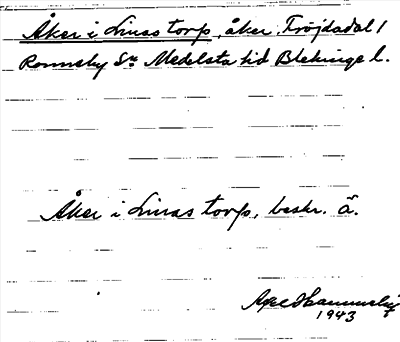 Åker i Linas torp, åker, Fröjdadal 1
Ronneby Sn Medelsta hd Blekinge l.
Åker i Linas torp, beskr. å.
1943